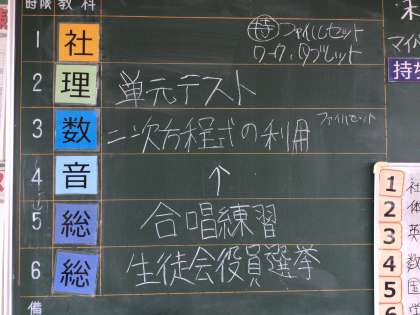 時限 教科
1 社 持 ファイルセット
ワーク、タブレット
2 理 単元テスト
3 数 二次方程式の利用 ファイルセット
4 音 ↑
5 総 合唱練習
6 総 生徒会役員選挙
備
マイパ
持ち
1 社
2 体
3 英
4 数
5 国
6